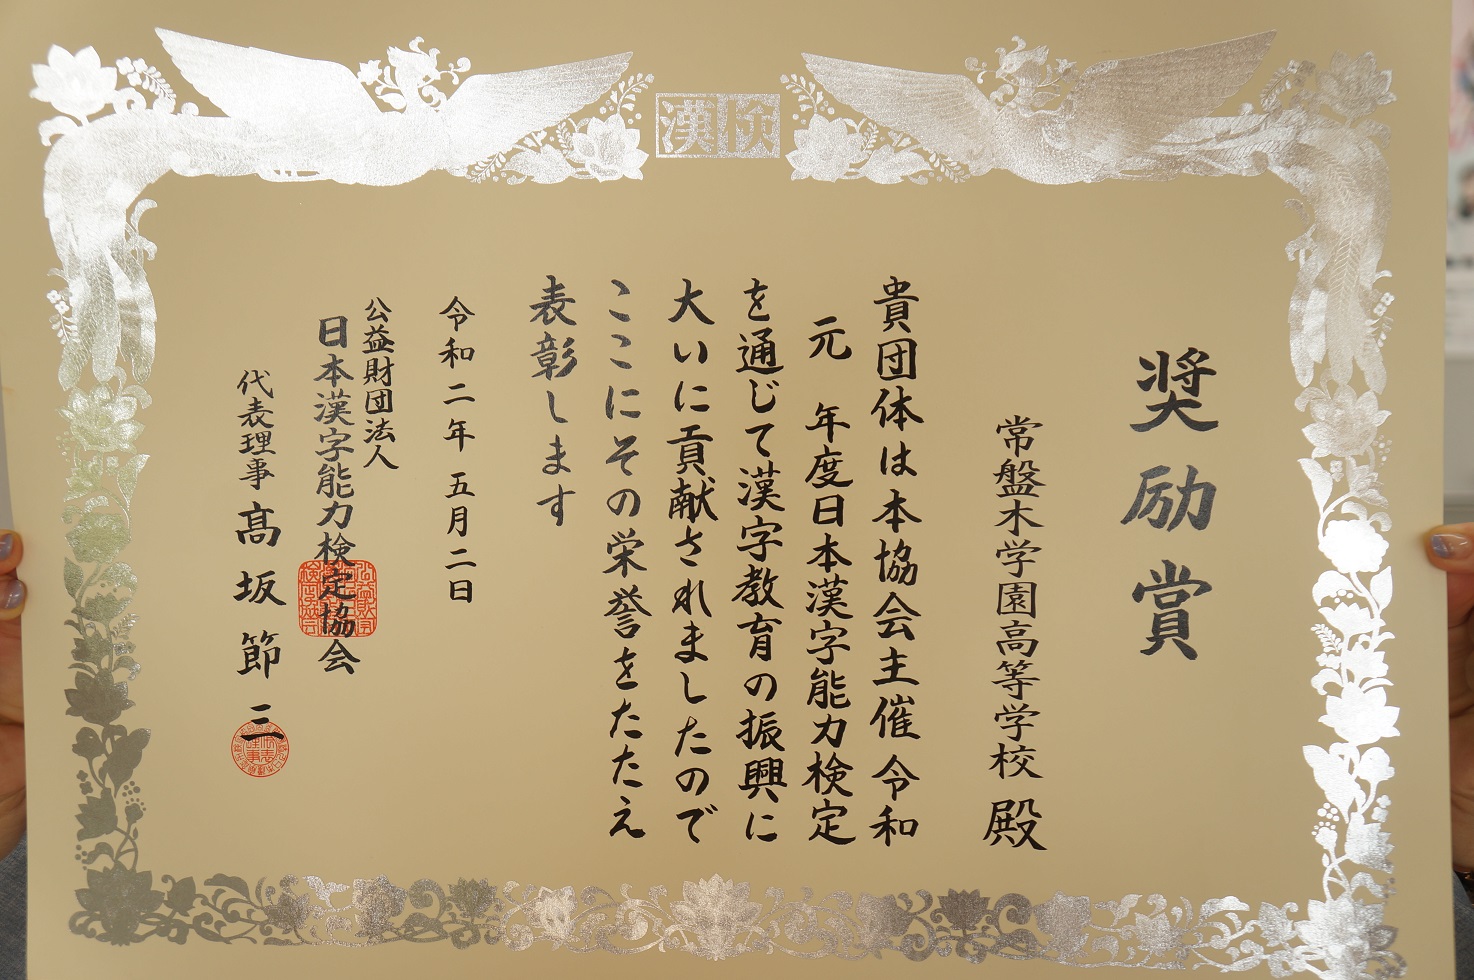 漢検
奨励賞
常盤木学園高等学校 殿
貴団体は本協会主催 令和
元 年度日本漢字能力検定
を通じて漢字教育の振興に
大いに貢献されましたので
ここにその栄誉をたたえ
表彰します
令和二年 五月二日
公益財団法人
日本漢字能力検定協会
代表理事 髙坂節三